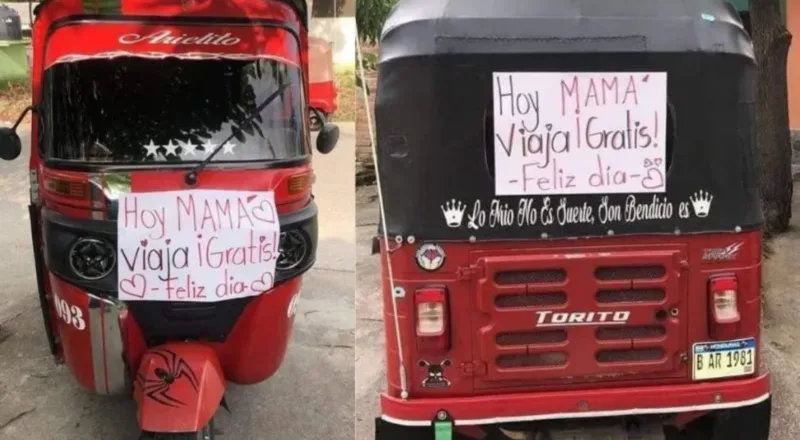 Arielito
Hoy MAMÁ
Viaja ¡Gratis!
-Feliz dia-
093
Hoy MAMÁ
Viaja ¡Gratis!
-Feliz dia-
Lo Mio No Es Suerte, Son Bendicio es
TORITO
HONDURAS
B AR 1981